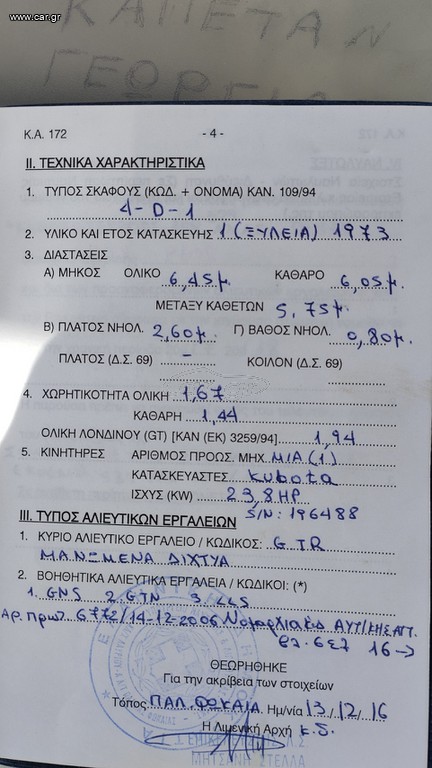 www.car.gr
ΚΑΠΕΤΑΝ
ΓΕΩΡΓΕΙΟ
Κ.Α. 172 - 4 -
II. ΤΕΧΝΙΚΑ ΧΑΡΑΚΤΗΡΙΣΤΙΚΑ
1. ΤΥΠΟΣ ΣΚΑΦΟΥΣ (ΚΩΔ. + ΟΝΟΜΑ) ΚΑΝ. 109/94
4-D-1
2. ΥΛΙΚΟ ΚΑΙ ΕΤΟΣ ΚΑΤΑΣΚΕΥΗΣ 1 (ΞΥΛΕΙΑ) 1973
3. ΔΙΑΣΤΑΣΕΙΣ
Α) ΜΗΚΟΣ ΟΛΙΚΟ 6,45μ. ΚΑΘΑΡΟ 6,05μ.
ΜΕΤΑΞΥ ΚΑΘΕΤΩΝ 5,75μ.
Β) ΠΛΑΤΟΣ ΝΗΟΛ. 2,60μ. Γ) ΒΑΘΟΣ ΝΗΟΛ. 0,80μ.
ΠΛΑΤΟΣ (Δ.Σ. 69) - ΚΟΙΛΟΝ (Δ.Σ. 69)
4. ΧΩΡΗΤΙΚΟΤΗΤΑ ΟΛΙΚΗ 1,67
ΚΑΘΑΡΗ 1,44
ΟΛΙΚΗ ΛΟΝΔΙΝΟΥ (GT) [ΚΑΝ (ΕΚ) 3259/94] 1,94
5. ΚΙΝΗΤΗΡΕΣ ΑΡΙΘΜΟΣ ΠΡΟΩΣ. ΜΗΧ. ΜΙΑ (1)
ΚΑΤΑΣΚΕΥΑΣΤΕΣ kubota
ΙΣΧΥΣ (KW) 23,8 HP
S/N: 196488
III. ΤΥΠΟΣ ΑΛΙΕΥΤΙΚΩΝ ΕΡΓΑΛΕΙΩΝ
1. ΚΥΡΙΟ ΑΛΙΕΥΤΙΚΟ ΕΡΓΑΛΕΙΟ / ΚΩΔΙΚΟΣ: GTR
ΜΑΝΩΜΕΝΑ ΔΙΧΤΥΑ
2. ΒΟΗΘΗΤΙΚΑ ΑΛΙΕΥΤΙΚΑ ΕΡΓΑΛΕΙΑ / ΚΩΔΙΚΟΙ: (*)
1. GNS 2. GTN 3. LLS
Αρ. πρωτ. 6772/14-12-2006 Νομαρχιακή
βλ. σελ 16→
ΘΕΩΡΗΘΗΚΕ
Για την ακρίβεια των στοιχείων
Τόπος ΠΑΛ. ΦΩΚΑΙΑ Ημ/νία 13/12/16
Η Λιμενική Αρχή κ.δ.
ΜΗΤΣΑΝΗ ΣΤΕΛΛΑ